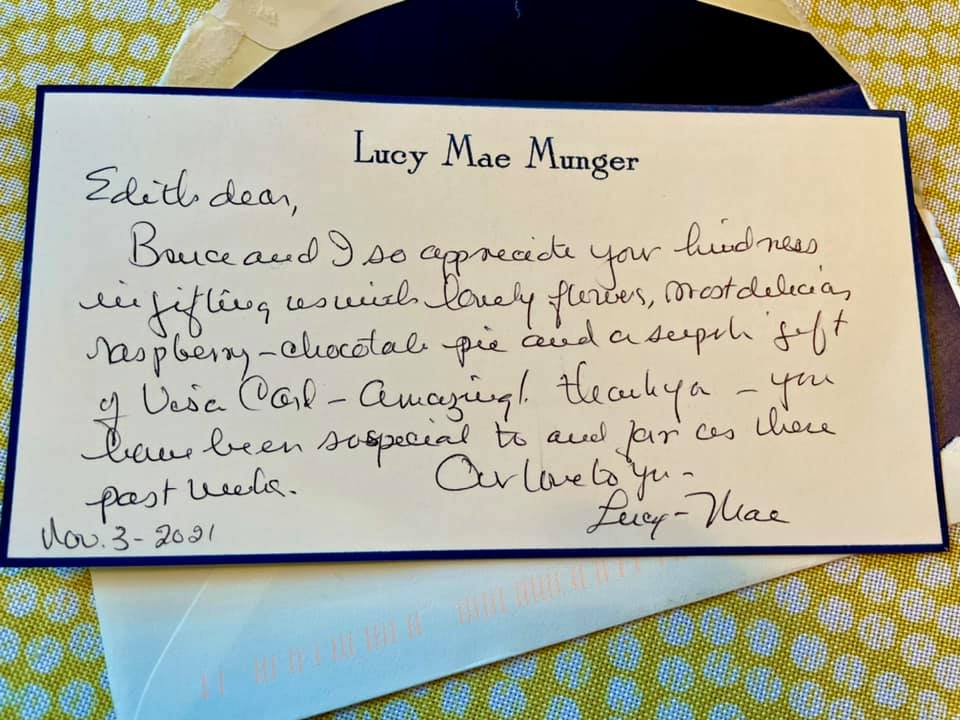 Lucy Mae Munger
Edith dear,
Bruce and I so appreciate your kindness
in gifting us with lovely flowers, most delicious
raspberry-chocolate pie and a superb gift
of Visa Card - Amazing! Thank you - you
have been so special to and for us these
past weeks. Our love to you -
Lucy-Mae
Nov. 3 - 2021